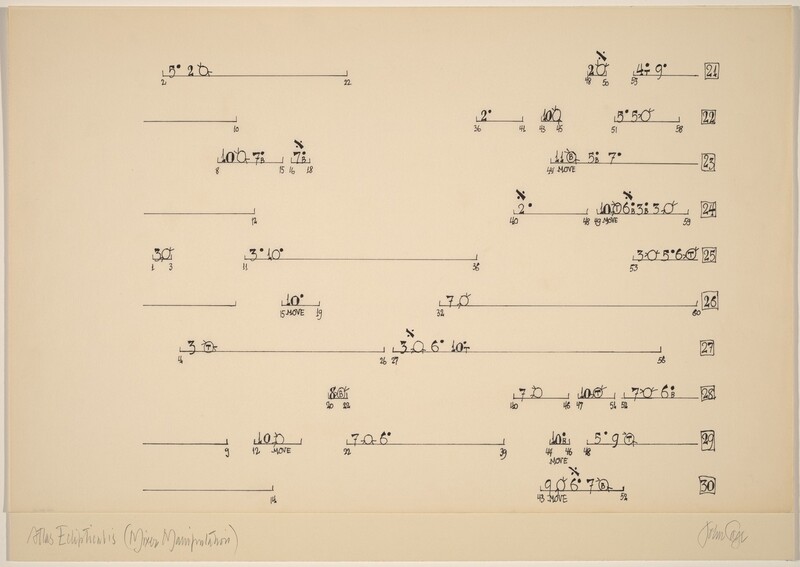 5 2 4 9 21
2 22 48 50 53
2 10 5 5 22
10 36 41 43 45 51 58
10 7 B 7 B 11 B 5 B 7 23
8 15 16 18 44 MOVE
2 10 6 B 3 B 3 24
12 40 48 49 MOVE 59
3 3 10 3 5 6 T 25
1 3 11 36 53
10 7 26
15 MOVE 19 32 60
3 T 3 6 10 T 27
4 26 27 56
8 B 7 10 T 7 6 B 28
20 22 40 46 47 51 52
10 7 6 10 B 5 9 T 29
9 12 MOVE 22 39 44 46 48
MOVE
9 6 7 B 30
14 43 MOVE 52
Atlas Eclipticalis (Mixer Manipulation) John Cage